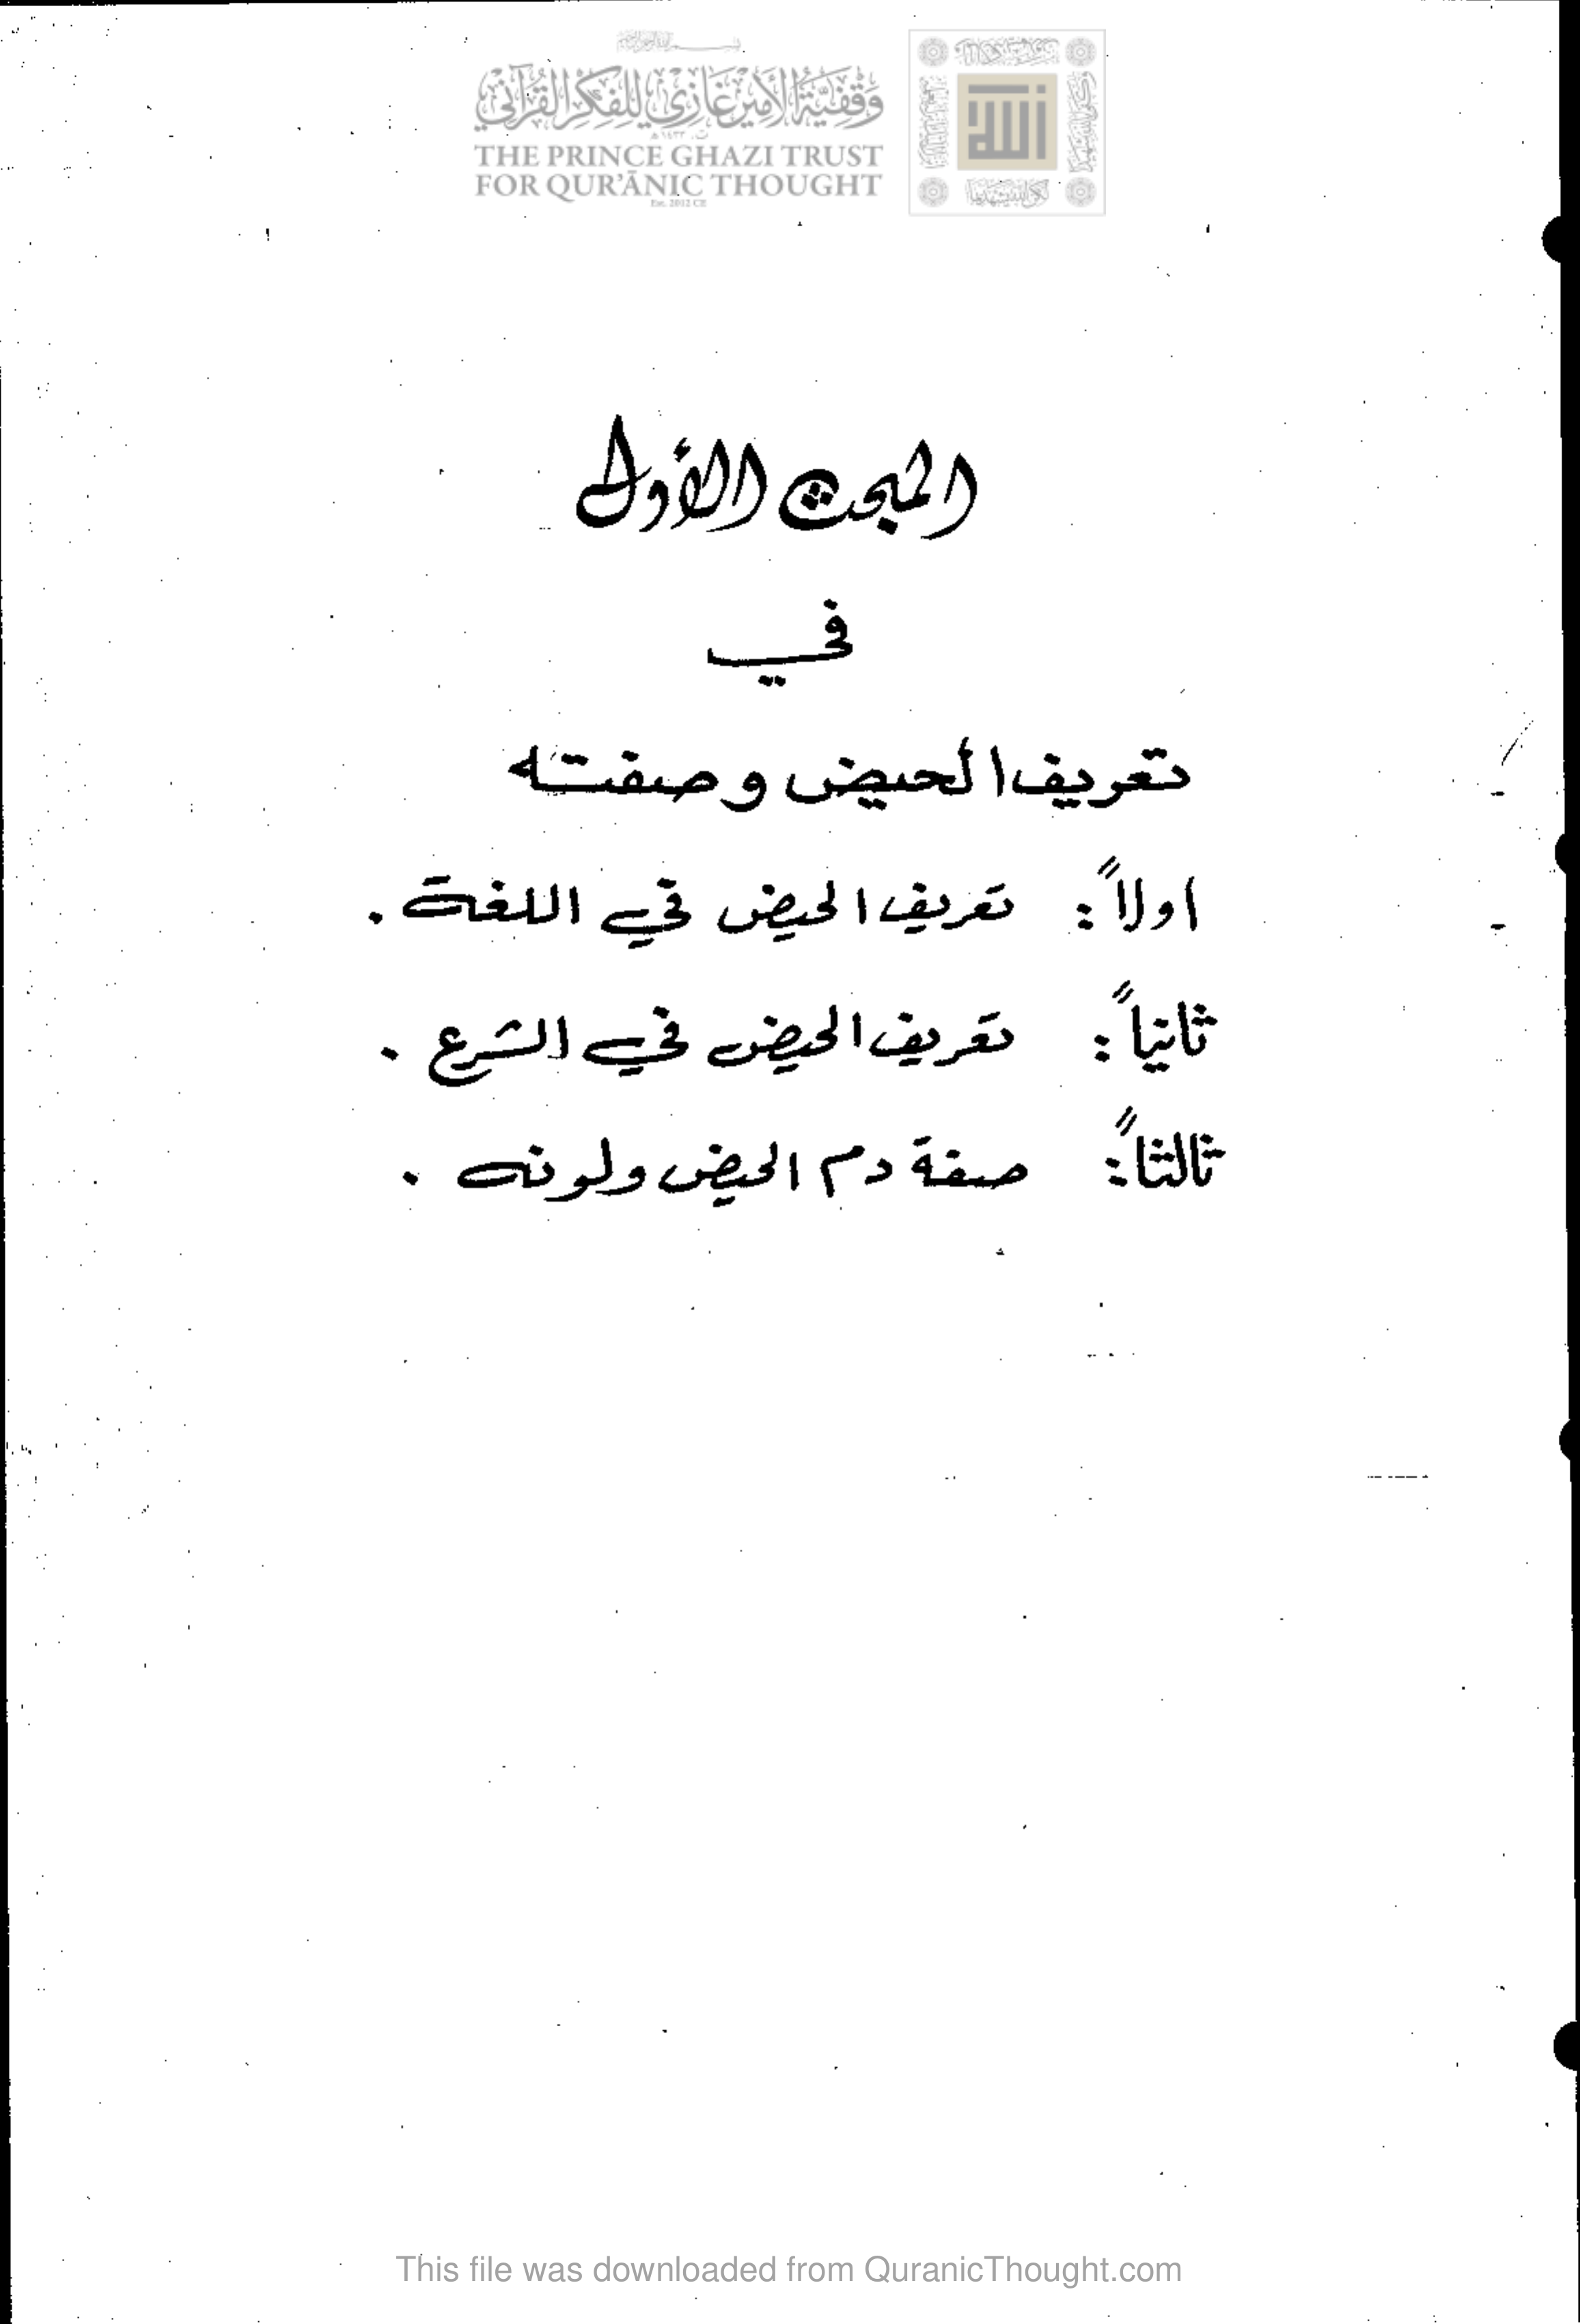 وَقْفِيَّةُ الأَمِيرِ غَازِي لِلْفِكْرِ القُرْآنِيِّ
THE PRINCE GHAZI TRUST
FOR QUR'ĀNIC THOUGHT
Est. 2012 CE
الله
المبحث الأول
في
تعريف الحيض وصفته
اولاً : تعريف الحيض في اللغة .
ثانياً : تعريف الحيض في الشرع .
ثالثاً : صفة دم الحيض ولونه .
This file was downloaded from QuranicThought.com